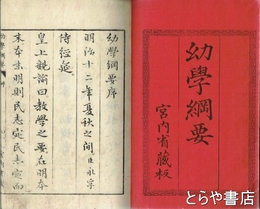 幼學綱要
宮内省藏板
幼學綱要序
明治十二年夏秋之間臣永孚
侍經筵
皇上親諭曰教學之要在明本
末本末明則民志定民志定而
とらや書店